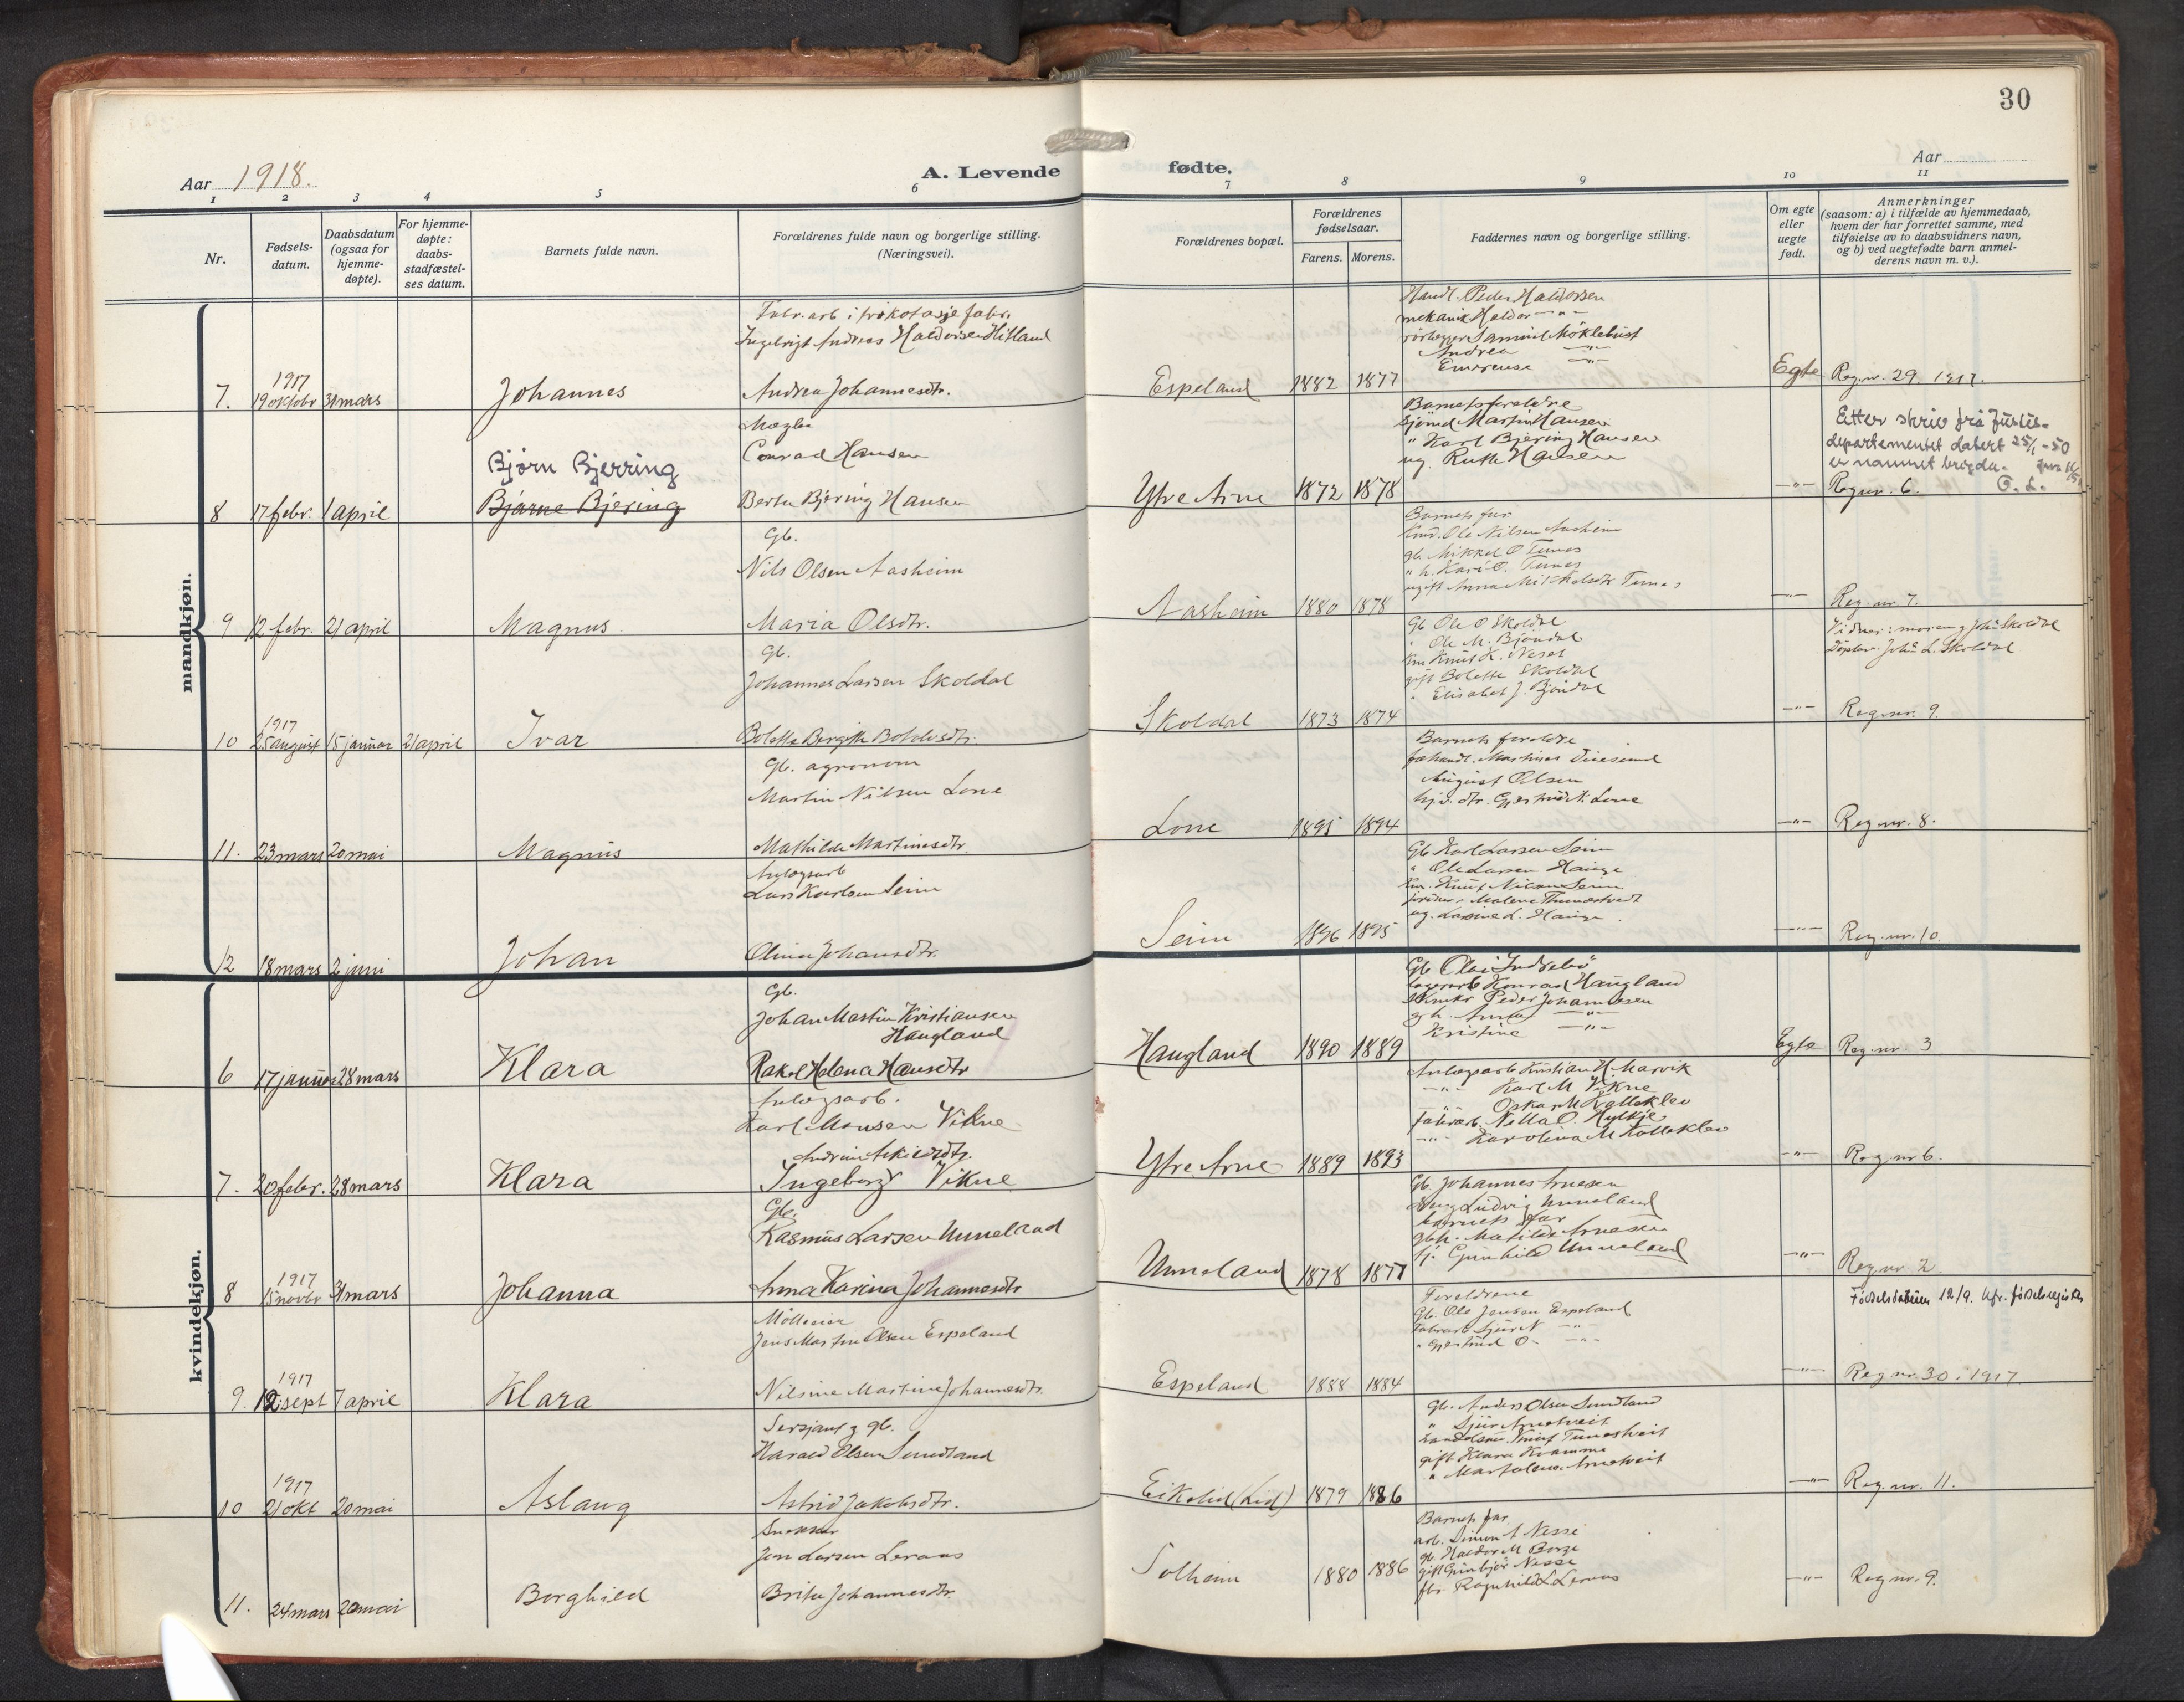 30
Aar 1918.
A. Levende fødte.
Aar
1 2 3 4 5 6 7 8 9 10 11
Nr.
Fødsels-
datum.
Daabsdatum
(ogsaa for
hjemme-
døpte).
For hjemme-
døpte:
daabs-
stadfæstel-
ses datum.
Barnets fulde navn.
Forældrenes fulde navn og borgerlige stilling.
(Næringsvei).
Forældrenes bopæl.
Forældrenes
fødselsaar.
Farens. Morens.
Faddernes navn og borgerlige stilling.
Om egte
eller
uegte
født.
Anmerkninger
(saasom: a) i tilfælde av hjemmedaab,
hvem der har forrettet samme, med
tilføielse av to daabsvidners navn,
og b) ved uegtefødte barn anmel-
derens navn m. v.).
mandkjøn.
7. 1917 19 oktobr 31 mars Johannes
Fabr. arb i trikotasje fabr.
Ingebrigt Andreas Haldorsen Hitland
Andrea Johannesdtr.
Espeland 1882 1877
Handl. Peder Haldorsen
mekanik Haldor -"-
rørlegger Samuel Møklebust
Andrea -"-
Emrense -"-
Egte Reg.nr. 29. 1917.
8 17 febr. 1 april
Bjørn Bjerring
Bjarne Bjering
Mægler
Conrad Hansen
Berta Bjering Hansen
Ytre Arne 1872 1878
Barnets foreldre
Sjømd Martin Hansen
" Karl Bjering Hansen
ug. Ruth Hansen
-"-
Etter skriv frå Justis-
departementet datert 25/1-50
er namnet brigda.
Reg.nr. 6. O. L.
9 12 febr. 21 april Magnus
Gb.
Nils Olsen Aasheim
Maria Olsdtr.
Aasheim 1880 1878
Barnets far
Ole Nilsen Aasheim
gb. Mikkel O Tunes
" h. Kari O. Tunes
ugift Anna Mikkelsdtr Tunes
-"- Reg. nr 7.
10 1917 25 august 15 januar 21 april Ivar
Gb.
Johannes Larsen Skoldal
Bolette Bergitte
Skoldal 1873 1874
Gb Ole O Skoldal
" Ole M. Bjøndal
Knut K. Neset
gift Bolette Skoldal
" Elisabet J. Bjøndal
Vidner: moren og Johs Skoldal
Døpt av Johs L. Skoldal
-"- Reg.nr. 9.
11. 23 mars 20 mai Magnus
Gb. agronom
Martin Nilsen Lone
Mathilde Martinesdtr.
Lone 1895 1894
Barnets foreldre
August Olsen
-"- Reg.nr. 8.
12 18 mars 2 juni Johan
Anlægsarb
Lars Karlsen Seim
Olina Johansdtr.
Seim 1896 1895
Gb Karl Larsen Seim
" Ole Larsen Hauge
Knut Nilsen Seim
ug. L. Hauge
-"- Reg.nr. 10.
kvindekjøn.
6 17 januar 28 mars Klara
Gb.
Johan Martin Kristiansen
Haugland
Rakel Helena Hansdtr
Haugland 1890 1889
Gb Olai Indrebø
lagerarb Konrad Haugland
Peder Johannesen
gb. h. Anna -"-
Kristine -"-
Egte Reg.nr. 3
7. 20 febr. 28 mars Klara
Anlægsarb.
Karl Monsen Vikne
Ingeborg Vikne
Ytre Arne 1889 1893
Anlægsarb Kristian H. Marvik
-"- Karl M Vikne
-"- Oskar M Kalleklev
fabrarb. Nilla O. Hylkje
-"- Karolina M Kalleklev
-"- Reg. nr 6.
8 1917 15 novbr 31 mars Johanna
Gb.
Rasmus Larsen Unneland
Anna Karina Johannesdtr
Unneland 1878 1877
Gb. Johannes Arnesen
Ludvig Unneland
barnets far
gb h. Matilde Arnesen
tj. Gunhild Unneland
-"- Reg.nr. 2.
9. 1917 12 sept 7 april Klara
Møller
Jens Martin Olsen Espeland
Nilsine Martine Johannesdtr.
Espeland 1888 1884
Foreldrene
Gb. Ole Jensen Espeland
Fabrarb Sjur N -"-
" Gjertrud O -"-
Fødselsdatoen 12/9. kfr. fødselsregister
-"- Reg nr. 30 i 1917
10 1917 21 okt 20 mai Aslaug
Sersjant og gb.
Harald Olsen Sundland
Astrid Jakobsdtr.
Eikelid (Lid) 1879 1886
Gb. Anders Olsen Sundland
" Sjur Arnetveit
gift Klara Kramme
" Martolena Arnetveit
-"- Reg.nr. 11.
11. 24 mars 20 mai Borghild
Snekker
Jon Larsen Leraas
Brita Johannesdtr.
Solheim 1880 1886
Barnets far
arb. Simon A Nesse
gb. Haldor M Borge
gift Gunbjør Nesse
Ragnhild L Leraas
-"- Reg nr. 9.